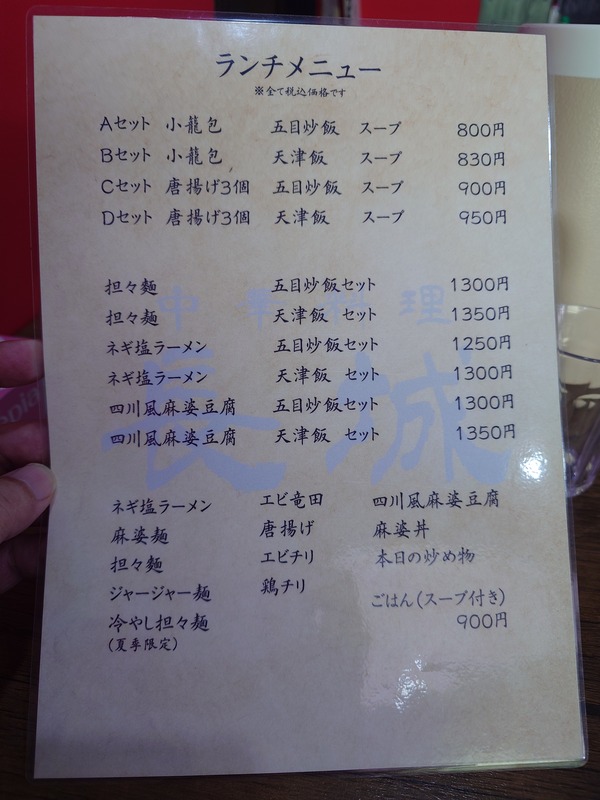 ランチメニュー
※全て税込価格です
Aセット 小龍包 五目炒飯 スープ 800円
Bセット 小龍包 天津飯 スープ 830円
Cセット 唐揚げ3個 五目炒飯 スープ 900円
Dセット 唐揚げ3個 天津飯 スープ 950円
中華料理
長城
担々麺 五目炒飯セット 1300円
担々麺 天津飯 セット 1350円
ネギ塩ラーメン 五目炒飯セット 1250円
ネギ塩ラーメン 天津飯 セット 1300円
四川風麻婆豆腐 五目炒飯セット 1300円
四川風麻婆豆腐 天津飯 セット 1350円
ネギ塩ラーメン エビ竜田 四川風麻婆豆腐
麻婆麺 唐揚げ 麻婆丼
担々麺 エビチリ 本日の炒め物
ジャージャー麺 鶏チリ ごはん(スープ付き)
冷やし担々麺 900円
(夏季限定)